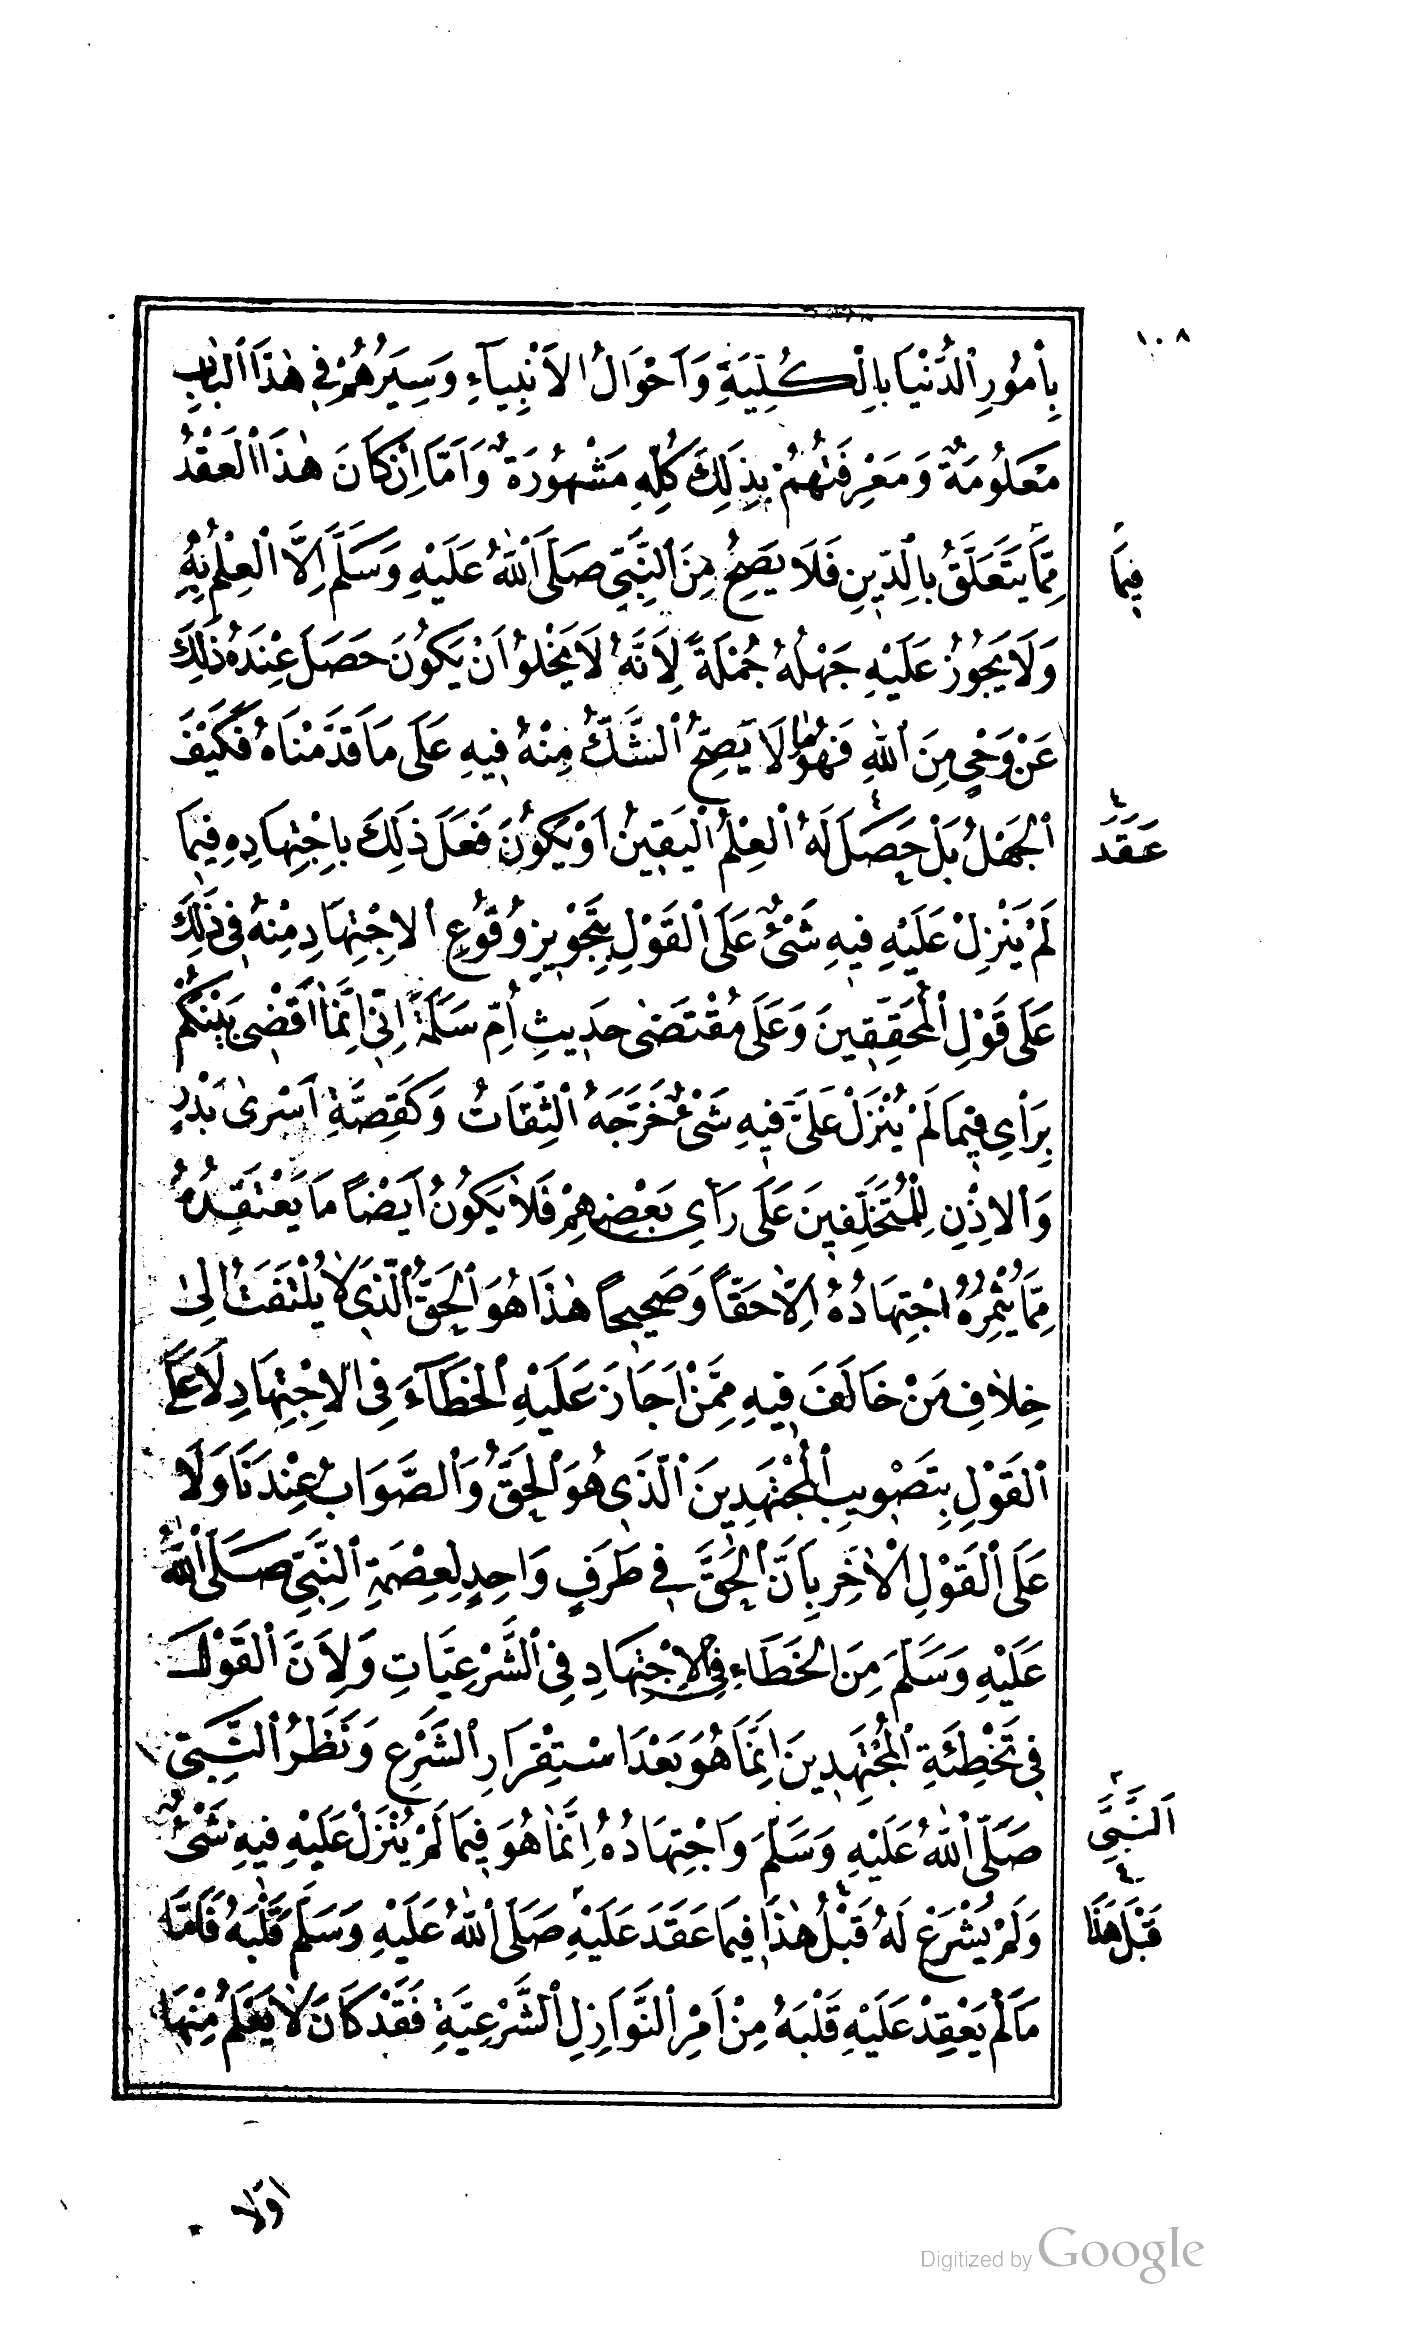 ١٠٨
بِاُمُورِ الدُّنْيَا بِالْكُلِّيَةِ وَاَحْوَالُ الْاَنْبِيَآءِ وَسِيَرُهُمْ فِي هٰذَا الْبَابِ
مَعْلُومَةٌ وَمَعْرِفَتُهُمْ بِذٰلِكَ كُلِّهِ مَشْهُورَةٌ وَاَمَّا اِنْ كَانَ هٰذَا الْعَقْدُ
مِمَّا يَتَعَلَّقُ بِالدِّينِ فَلَا يَصِحُّ مِنَ النَّبِيِّ صَلَّى اللّٰهُ عَلَيْهِ وَسَلَّمَ اِلَّا الْعِلْمُ بِهِ
فِيمَا
وَلَا يَجُوزُ عَلَيْهِ جَهْلُهُ جُمْلَةً لِاَنَّهُ لَا يَخْلُوُ اَنْ يَكُونَ حَصَلَ عِنْدَهُ ذٰلِكَ
عَنْ وَحْيٍ مِنَ اللّٰهِ فَهُوَ مَا لَا يَصِحُّ الشَّكُّ مِنْهُ فِيهِ عَلَى مَا قَدَّمْنَاهُ فَكَيْفَ
الْجَهْلُ بَلْ حَصَلَ لَهُ الْعِلْمُ الْيَقِينُ اَوْ يَكُونَ فَعَلَ ذٰلِكَ بِاجْتِهَادِهِ فِيمَا
عَقَدَ
لَمْ يَنْزِلْ عَلَيْهِ فِيهِ شَىْءٌ عَلَى الْقَوْلِ بِتَجْوِيزِ وُقُوعِ الْاِجْتِهَادِ مِنْهُ فِى ذٰلِكَ
عَلَى قَوْلِ الْمُحَقِّقِينَ وَعَلَى مُقْتَضٰى حَدِيثِ اُمِّ سَلَمَةَ اِنِّى اِنَّمَا اَقْضِى بَيْنَكُمْ
بِرَأْيِى فِيمَا لَمْ يُنْزَلْ عَلَىَّ فِيهِ شَىْءٌ خَرَّجَهُ الثِّقَاتُ وَكَقِصَّةِ اَسْرٰى بَدْرٍ
وَالْاِذْنِ لِلْمُتَخَلِّفِينَ عَلَى رَأْىِ بَعْضِهِمْ فَلَا يَكُونُ اَيْضًا مَا يَعْتَقِدُهُ
مِمَّا يُثْمِرُهُ اجْتِهَادُهُ اِلَّا حَقًّا وَصَحِيحًا هٰذَا هُوَ الْحَقُّ الَّذِى لَا يُلْتَفَتُ اِلٰى
خِلَافِ مَنْ خَالَفَ فِيهِ مِمَّنْ اَجَازَ عَلَيْهِ الْخَطَآءَ فِى الْاِجْتِهَادِ لَا عَلَى
الْقَوْلِ بِتَصْوِيبِ الْمُجْتَهِدِينَ الَّذِى هُوَ الْحَقُّ وَالصَّوَابُ عِنْدَنَا وَلَا
عَلَى الْقَوْلِ الْاٰخَرِ بِاَنَّ الْحَقَّ فِى طَرَفٍ وَاحِدٍ لِعِصْمَةِ النَّبِيِّ صَلَّى اللّٰهُ
عَلَيْهِ وَسَلَّمَ مِنَ الْخَطَاءِ فِى الْاِجْتِهَادِ فِى الشَّرْعِيَّاتِ وَلِاَنَّ الْقَوْلَ
فِى تَخْطِئَةِ الْمُجْتَهِدِينَ اِنَّمَا هُوَ بَعْدَ اسْتِقْرَارِ الشَّرْعِ وَنَظَرُ النَّبِىِّ
صَلَّى اللّٰهُ عَلَيْهِ وَسَلَّمَ وَاجْتِهَادُهُ اِنَّمَا هُوَ فِيمَا لَمْ يُنْزَلْ عَلَيْهِ فِيهِ شَىْءٌ
اَلنَّبِىُّ
وَلَمْ يُشْرَعْ لَهُ قَبْلُ هٰذَا فِيمَا عَقَدَ عَلَيْهِ صَلَّى اللّٰهُ عَلَيْهِ وَسَلَّمَ قَلْبَهُ فَاَمَّا
قَبْلَ هٰذَا
مَا لَمْ يَعْقِدْ عَلَيْهِ قَلْبَهُ مِنْ اَمْرِ النَّوَازِلِ الشَّرْعِيَّةِ فَقَدْ كَانَ لَا يَعْلَمُ مِنْهَا
اوّلا
Digitized by Google